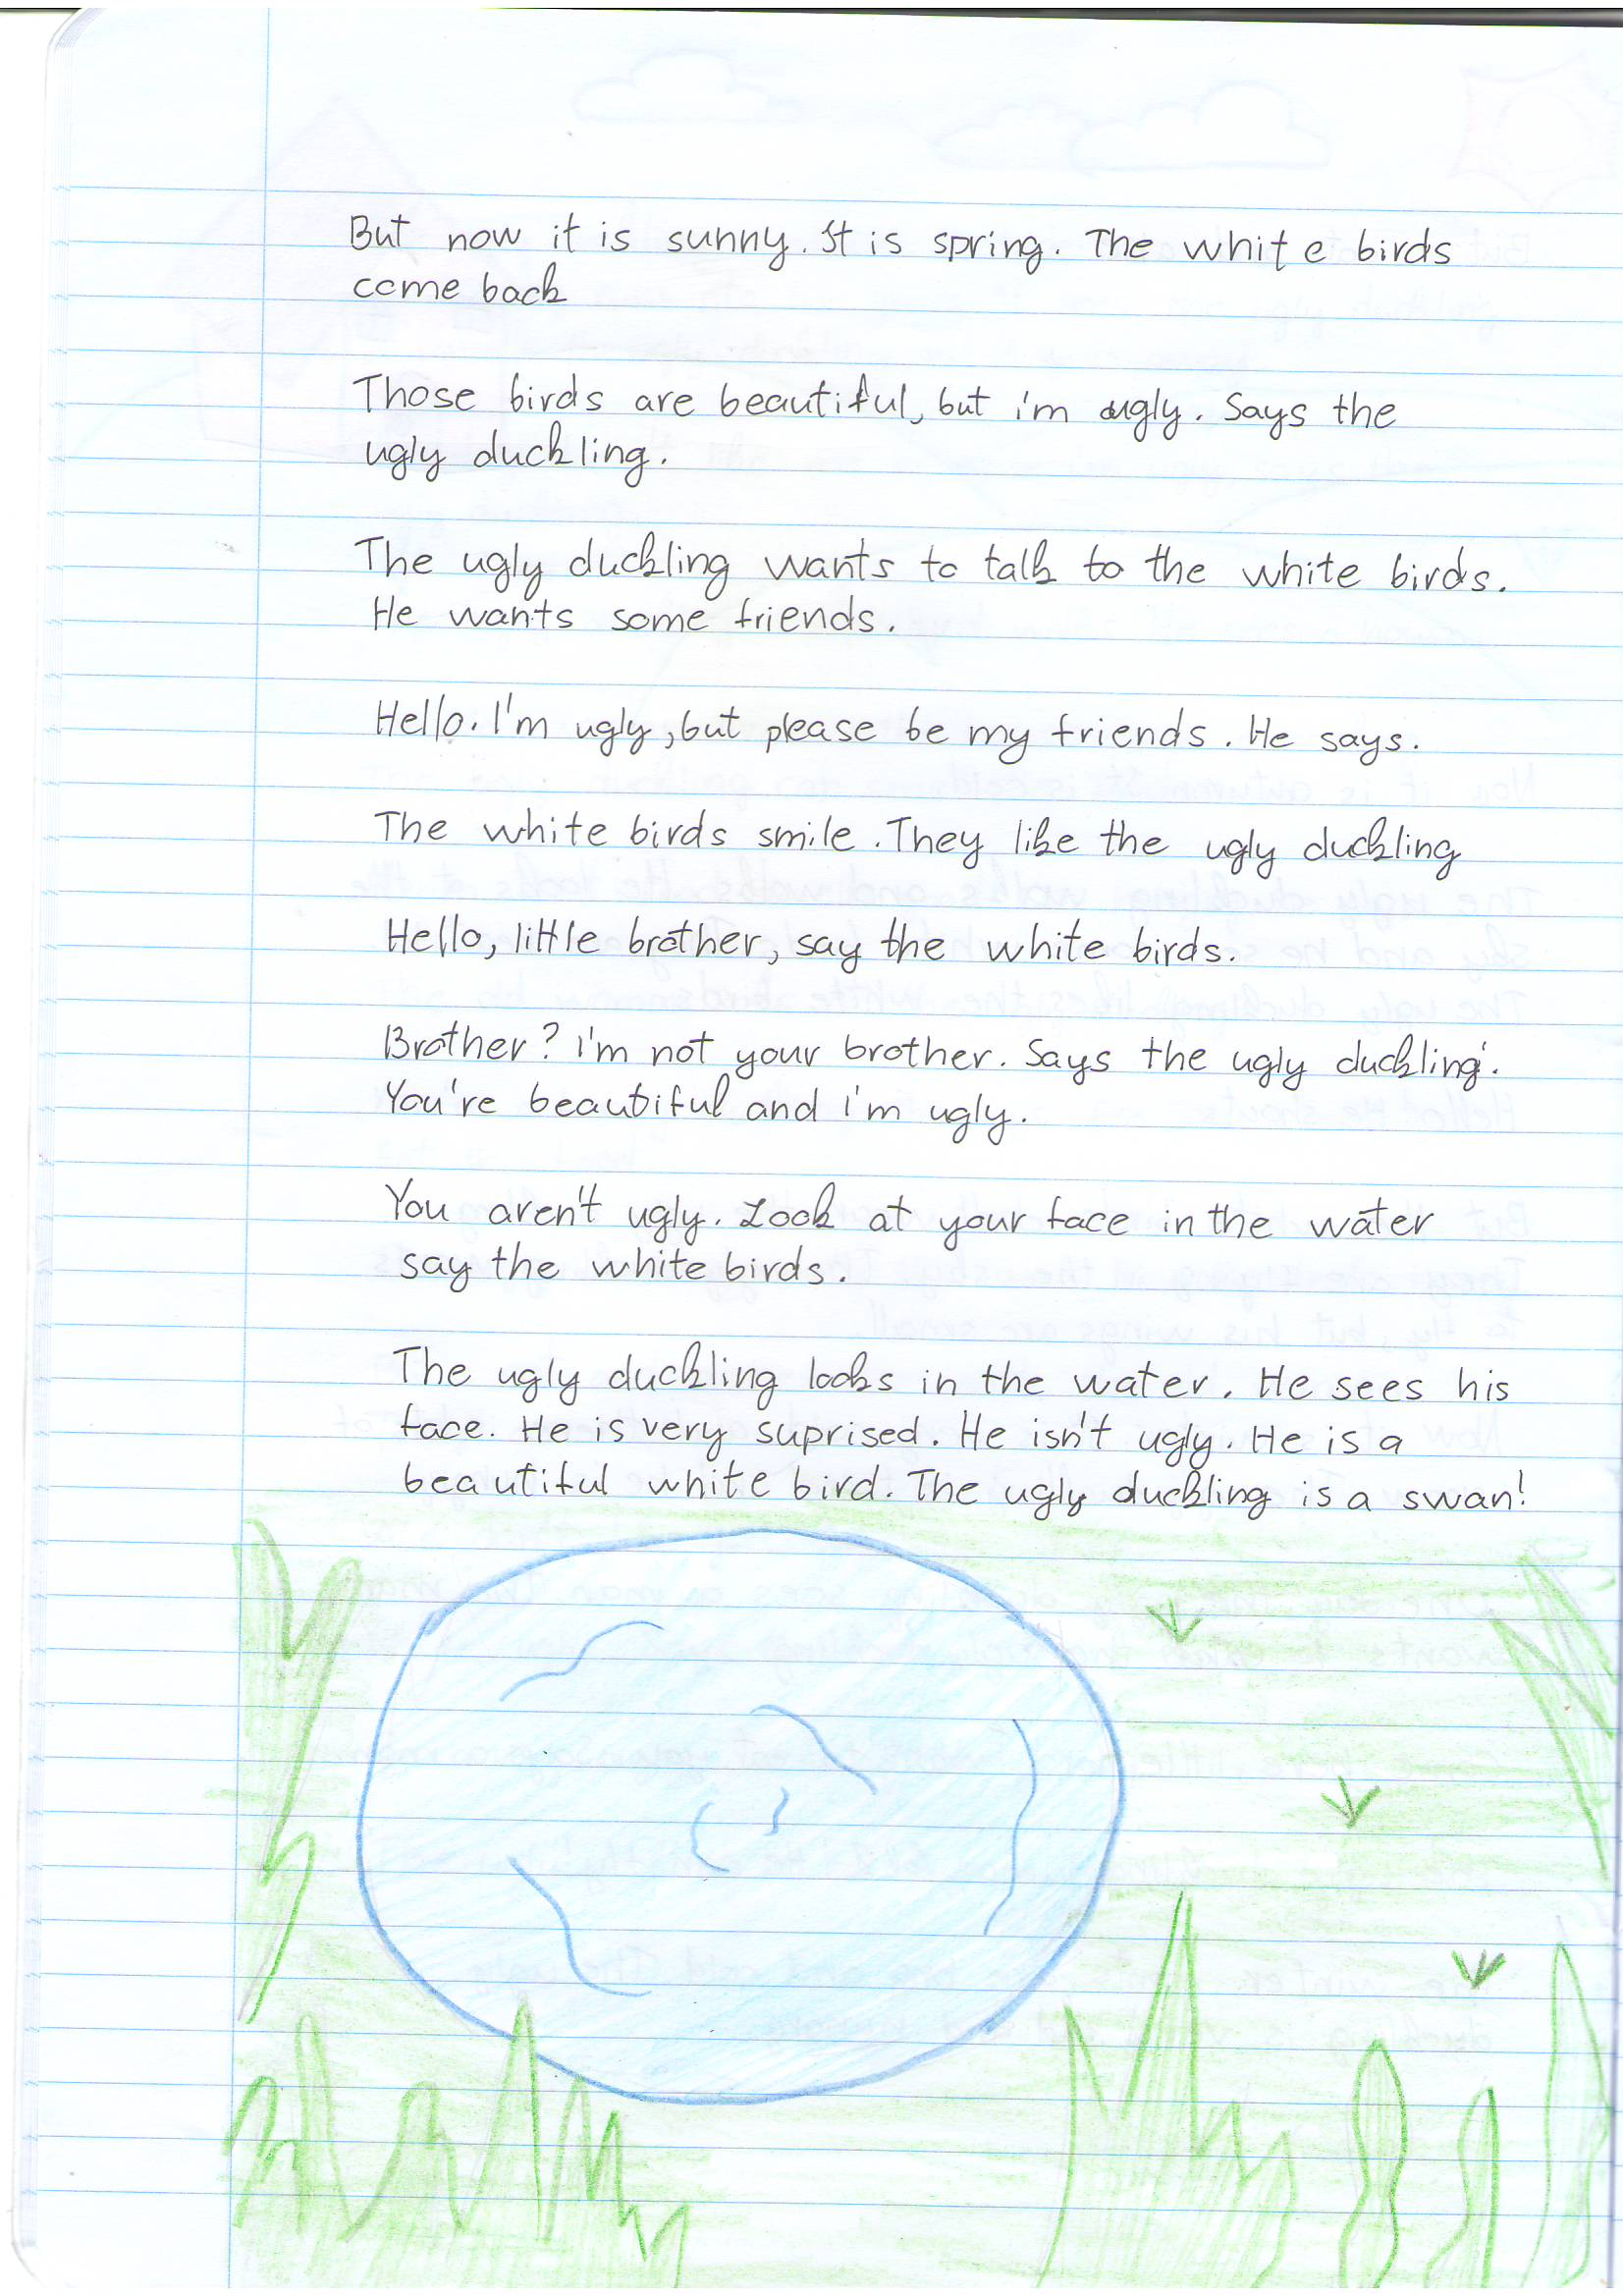 But now it is sunny. It is spring. The white birds
come back
Those birds are beautiful, but i'm ugly. Says the
ugly duckling.
The ugly duckling wants to talk to the white birds.
He wants some friends.
Hello. I'm ugly, but please be my friends. He says.
The white birds smile. They like the ugly duckling
Hello, little brother, say the white birds.
Brother? i'm not your brother. Says the ugly duckling.
You're beautiful and i'm ugly.
You aren't ugly. Look at your face in the water
say the white birds.
The ugly duckling looks in the water. He sees his
face. He is very suprised. He isn't ugly. He is a
beautiful white bird. The ugly duckling is a swan!